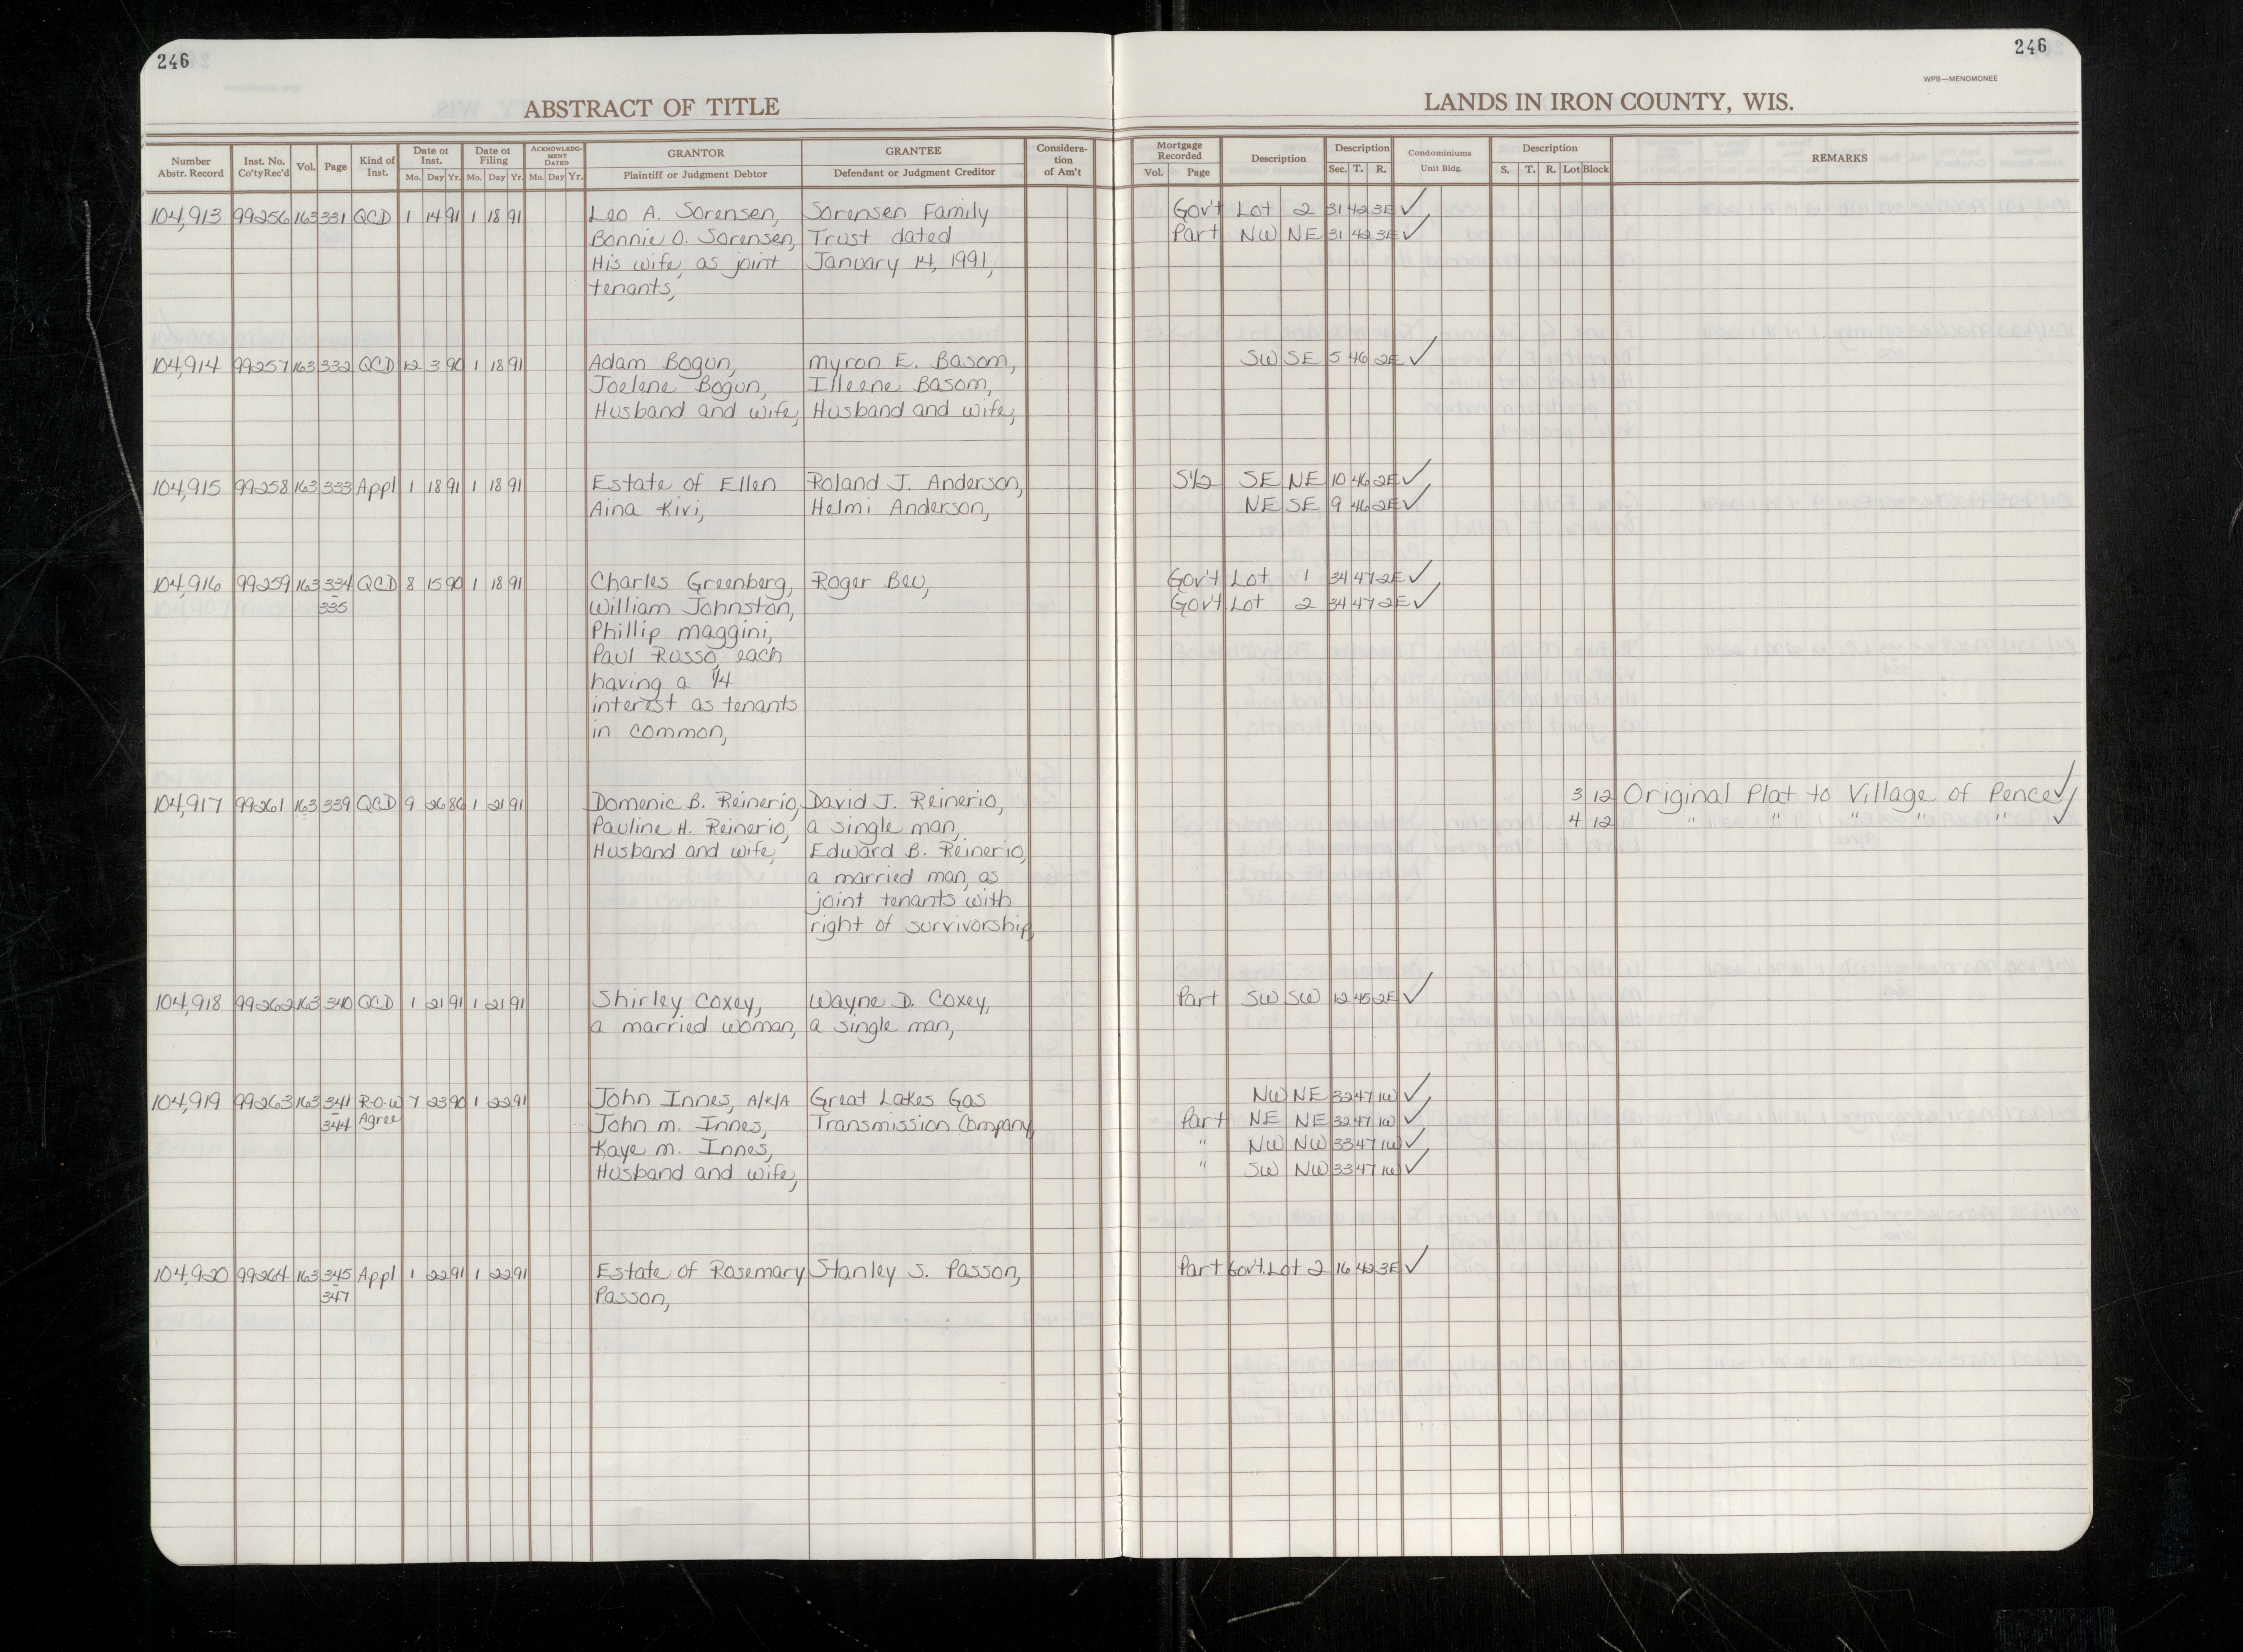 246
246
WPB—MENOMONEE
ABSTRACT OF TITLE
LANDS IN IRON COUNTY, WIS.
Number Abstr. Record | Inst. No. Co'ty Rec'd | Vol. | Page | Kind of Inst. | Date of Inst. Mo. Day Yr. | Date of Filing Mo. Day Yr. | ACKNOWLEDGMENT DATED Mo. Day Yr. | GRANTOR Plaintiff or Judgment Debtor | GRANTEE Defendant or Judgment Creditor | Consideration of Am't | Mortgage Recorded Vol. Page | Description | Description Sec. T. R. | Condominiums Unit Bldg. | Description S. T. R. Lot Block | REMARKS
104,913 99256 163 331 QCD 1 14 91 1 18 91 Leo A. Sorensen, Sorensen Family Gov't Lot 2 31 42 3E ✓
Bonnie O. Sorensen, Trust dated Part NW NE 31 42 3E ✓
His wife, as joint January 14, 1991,
tenants,
104,914 99257 163 332 QCD 12 3 90 1 18 91 Adam Bogun, Myron E. Basom, SW SE 5 46 2E ✓
Joelene Bogun, Illeene Basom,
Husband and wife, Husband and wife,
104,915 99258 163 333 Appl 1 18 91 1 18 91 Estate of Ellen Roland J. Anderson, S1/2 SE NE 10 46 2E ✓
Aina Kivi, Helmi Anderson, NE SE 9 46 2E ✓
104,916 99259 163 334 QCD 8 15 90 1 18 91 Charles Greenberg, Roger Beu, Gov't Lot 1 34 47 2E ✓
335 William Johnston, Gov't Lot 2 34 47 2E ✓
Phillip Maggini,
Paul Russo, each
having a 1/4
interest as tenants
in common,
104,917 99261 163 339 QCD 9 26 86 1 21 91 Domenic B. Reinerio, David J. Reinerio, 3 12 Original Plat to Village of Pence ✓
Pauline H. Reinerio, a single man, 4 12 " " " " " ✓
Husband and wife, Edward B. Reinerio,
a married man, as
joint tenants with
right of survivorship,
104,918 99262 163 340 QCD 1 21 91 1 21 91 Shirley Coxey, Wayne D. Coxey, Part SW SW 12 45 2E ✓
a married woman, a single man,
104,919 99263 163 341 R-O-W 7 23 90 1 22 91 John Innes, A/K/A Great Lakes Gas NW NE 32 47 1W ✓
344 Agree John M. Innes, Transmission Company, Part NE NE 32 47 1W ✓
Kaye M. Innes, " NW NW 33 47 1W ✓
Husband and wife, " SW NW 33 47 1W ✓
104,920 99264 163 345 Appl 1 22 91 1 22 91 Estate of Rosemary Stanley S. Passon, Part Gov't. Lot 2 16 42 3E ✓
347 Passon,